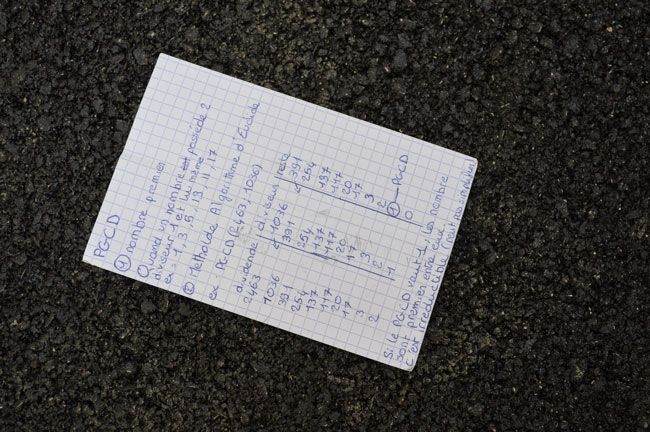 PGCD
① nombre premier
Quand un nombre est possède 2
diviseur 1 et lui même
ex : 1, 3, 5, 13, 11, 17
② Methode Algorithme d'Euclide
ex PGCD (2463, 1036)
dividende | diviseur | reste
2463 1036 391
1036 391 254
391 254 137
254 137 117
137 117 20
117 20 17
20 17 3
17 3 2
3 2 ①→ PGCD
2 1 0
Si le PGCD vaut 1, les nombre
sont premier entre eux
c'est irreductible